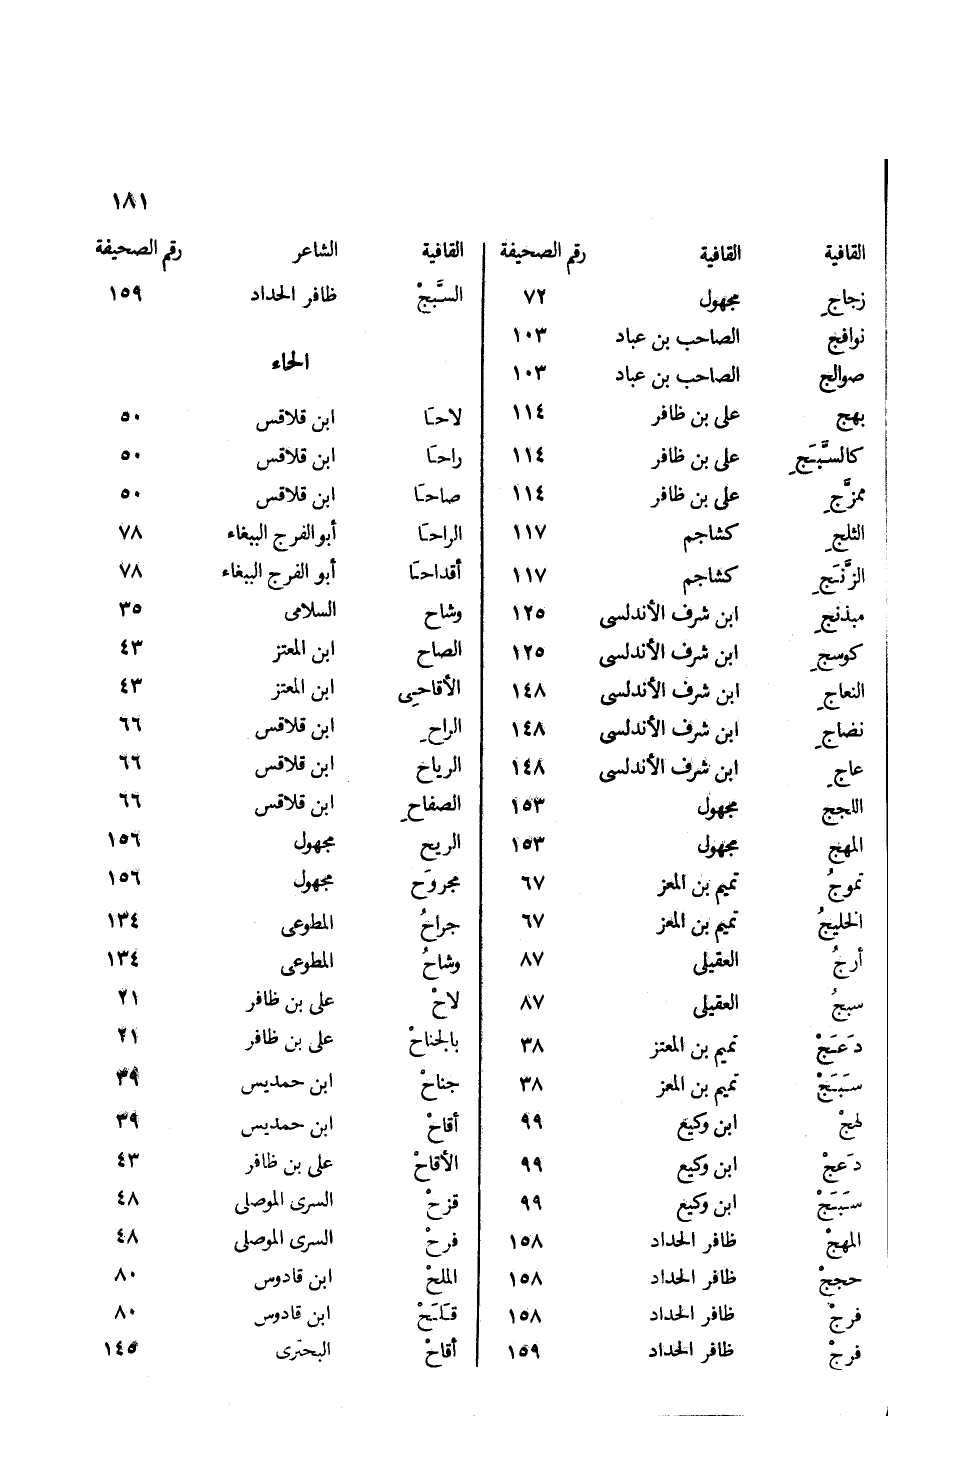 ١٨١
القافية القافية رقم الصحيفة
زجاجِ مجهول ٧٢
نوافج الصاحب بن عباد ١٠٣
صوالج الصاحب بن عباد ١٠٣
بهج على بن ظافر ١١٤
كالسَّبَجِ على بن ظافر ١١٤
ممزَّجِ على بن ظافر ١١٤
الثلجِ كشاجم ١١٧
الزَّنَجِ كشاجم ١١٧
مبذنجِ ابن شرف الأندلسى ١٢٥
كوسجِ ابن شرف الأندلسى ١٢٥
النعاجِ ابن شرف الأندلسى ١٤٨
نضاجِ ابن شرف الأندلسى ١٤٨
عاجِ ابن شرف الأندلسى ١٤٨
اللجج مجهول ١٥٣
المهج مجهول ١٥٣
تموجُ تميم بن المعز ٦٧
الخليجُ تميم بن المعز ٦٧
أرجُ العقيلى ٨٧
سبجُ العقيلى ٨٧
دَعَجْ تميم بن المعتز ٣٨
سَبَجْ تميم بن المعز ٣٨
لهجْ ابن وكيع ٩٩
دَعجْ ابن وكيع ٩٩
سَبَجْ ابن وكيع ٩٩
المهجْ ظافر الحداد ١٥٨
حججْ ظافر الحداد ١٥٨
فرجْ ظافر الحداد ١٥٨
فرجْ ظافر الحداد ١٥٩
القافية الشاعر رقم الصحيفة
السَّبَجْ ظافر الحداد ١٥٩
الحاء
لاحَا ابن قلاقس ٥٠
راحَا ابن قلاقس ٥٠
صاحَا ابن قلاقس ٥٠
الراحَا أبو الفرج الببغاء ٧٨
أقداحَا أبو الفرج الببغاء ٧٨
وشاح السلامى ٣٥
الصاح ابن المعتز ٤٣
الأقاحِى ابن المعتز ٤٣
الراحِ ابن قلاقس ٦٦
الرياح ابن قلاقس ٦٦
الصفاحِ ابن قلاقس ٦٦
الريح مجهول ١٥٦
مجروَح مجهول ١٥٦
جراحُ المطوعى ١٣٤
وشاحُ المطوعى ١٣٤
لاحْ على بن ظافر ٢١
بالجناحْ على بن ظافر ٢١
جناحْ ابن حمديس ٣٩
أقاحْ ابن حمديس ٣٩
الأقاحْ على بن ظافر ٤٣
قزحْ السرى الموصلى ٤٨
فرحْ السرى الموصلى ٤٨
الملحْ ابن قادوس ٨٠
قَلَحْ ابن قادوس ٨٠
أقاحْ البحترى ١٤٥